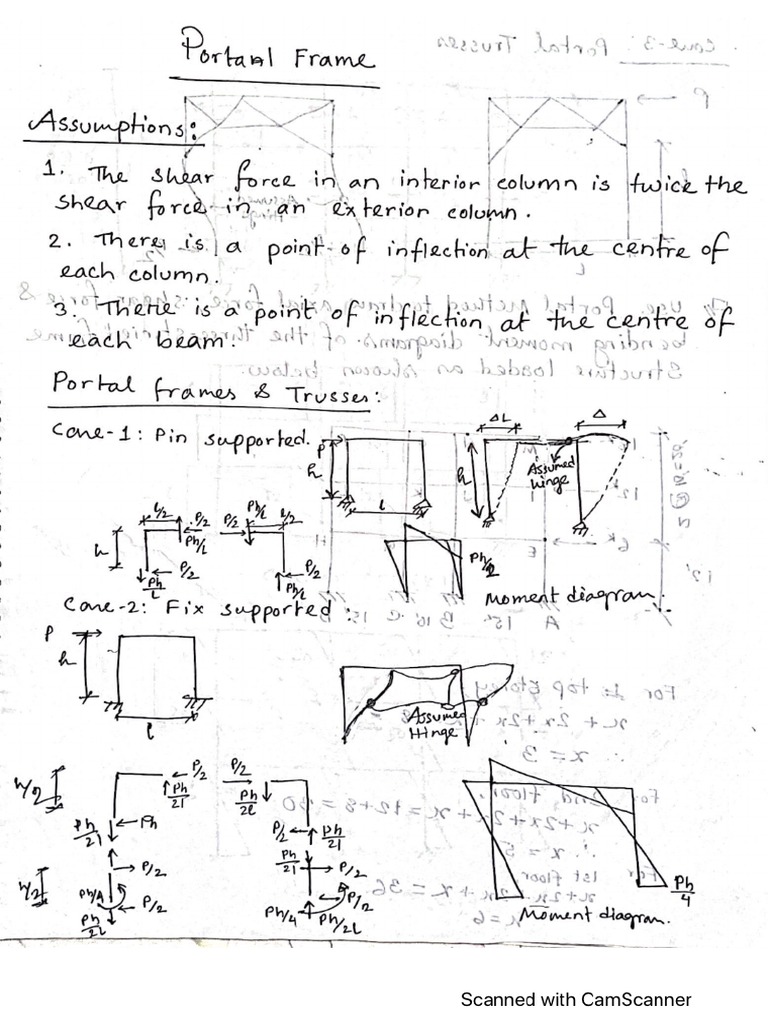 Portal Frame
Assumptions:
1. The shear force in an interior column is twice the
shear force in an exterior column.
2. There is a point of inflection at the centre of
each column.
3. There is a point of inflection at the centre of
each beam.
Portal frames & Trusses:
Case-1: Pin supported.
P
h
l
ΔL
Δ
h
Assumed
hinge
L/2
P/2
Ph/L
h
P/2
Ph/L
P/2
Ph/L
L/2
P/2
Ph/L
Ph/2
Moment diagram.
Case-2: Fix supported:
P
h
l
Assumed
Hinge
h/2
P/2
Ph/2l
Ph/2l
Ph
P/2
h/2
Ph/4
P/2
Ph/2l
P/2
Ph/2l
P/2
Ph/2l
Ph/2l
P/2
P/2
Ph/4
Ph/2l
Ph/4
Moment diagram.
Scanned with CamScanner